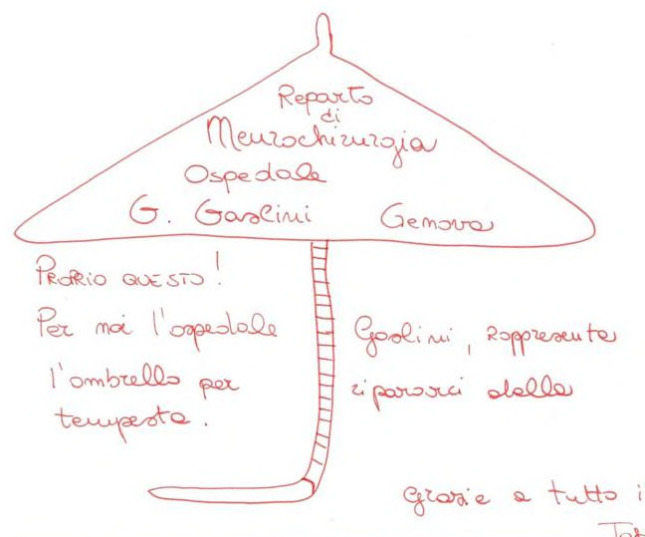 Reparto
di
Neurochirurgia
Ospedale
G. Gaslini Genova
PROPRIO QUESTO!
Per noi l'ospedale Gaslini, rappresenta
l'ombrello per ripararci dalla
tempesta.
Grazie a tutto i